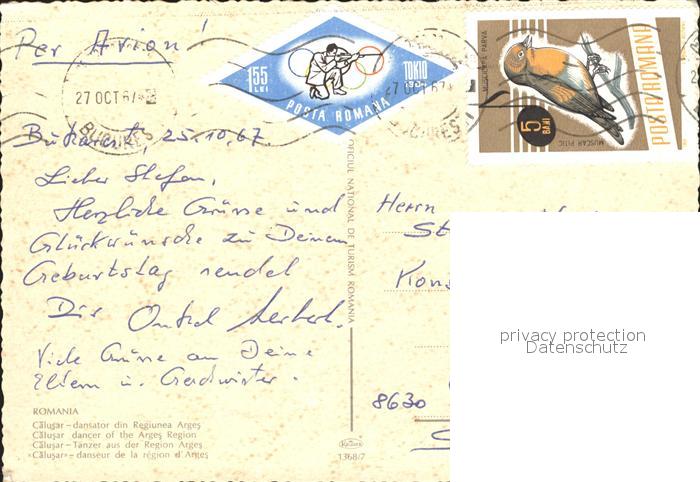 Per Avion!
27 OCT 67
BUCUREȘTI
1,55
LEI
TOKIO
POSTA ROMANA
27 OCT 67
MUSCICAPA PARVA
5
BANI
MUSCAR PITIC
POSTA ROMANA
Bukarest, 25.10.67.
Lieber Stefan,
Herzliche Grüsse und
Glückwünsche zu Deinem
Geburtstag sendet
Dir Onkel Herbert.
Viele Grüsse an Deine
Eltern u. Geschwister.
ROMANIA
Călușar – dansator din Regiunea Argeș
Călușar dancer of the Argeș Region
Călușar – Tänzer aus der Region Argeș
«Călușar» – danseur de la région d'Argeș
OFICIUL NATIONAL DE TURISM ROMANIA
1368/7
Herrn
St
Kons
8630
privacy protection
Datenschutz